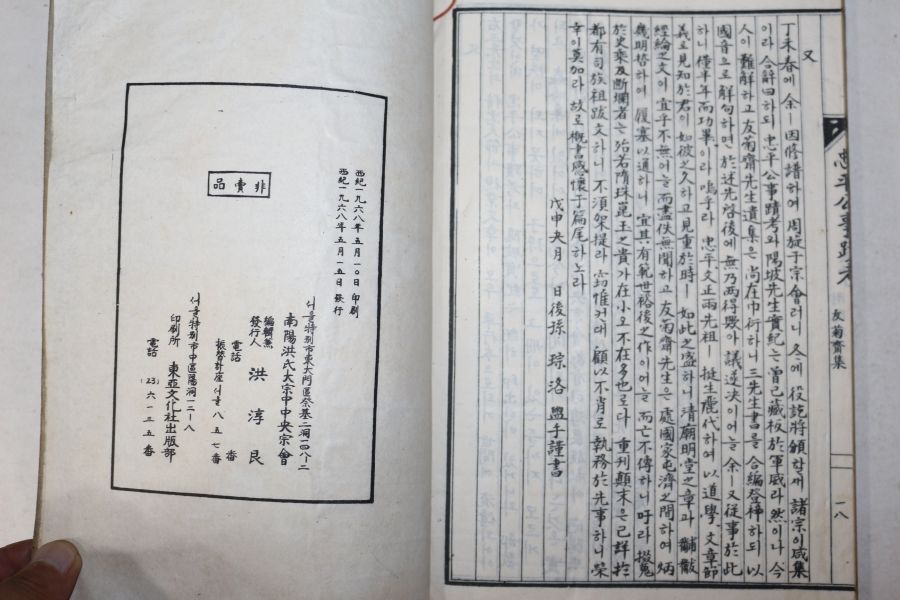 忠平公事蹟考
友菊齋集
一八
又
丁未春에 余ㅣ因修譜하여 周旋于宗會러니 今에 役訖將頒할새 諸宗이 咸集
이라 合辭曰하되 忠平公事蹟考와 陽坡先生實紀는 曾已藏板於軍威라 然이나 今
人이 難解하고 友菊齋先生遺集은 尙在巾衍하니 三先生書를 合編登梓하되 以
國音으로 解句하면 於述先啓後에 無乃兩得歟아 議遂決이어늘 余ㅣ又從事於此
하니 僅半年而功畢이라 嗚乎라 忠平文正兩先祖ㅣ 挺生麗代하여 以道學、文章節
義로 見知於君이 如彼之久하고 見重於時ㅣ 如此之盛하니 清廟明堂之章과 黼黻
經綸之文이 宜乎不無이어늘 而盡佚無聞하고 友菊齋先生은 處國家屯濟之間하여 炳
幾明哲하여 履塞以通하니 宜其有範世裕後之作이어늘 而亡不傳하니 吁라 掇蒐
於史乘及斷爛者는 殆若隋珠崑玉之貴가 在小오 不在多也로다 重刊顚末은 已詳於
都有司族祖跋文하니 不須架提라 窃惟컨대 顧以不肖로 執務於先事하니 榮
幸이 莫加라 故로 概書感懷于篇尾하노라
戊申 月 日後孫 琮洛 盥手謹書
西紀一九六八年五月一〇日 印刷
西紀一九六八年五月一五日 發行
非賣品
서울特別市東大門區祭基二洞一四八—二
南陽洪氏大宗中中央宗會
編輯兼
發行人 洪淳艮
電話 番
振替計座서울八五七番
서울特別市中區陽洞一二—八
印刷所 東亞文化社出版部
電話 (23)六一三五番